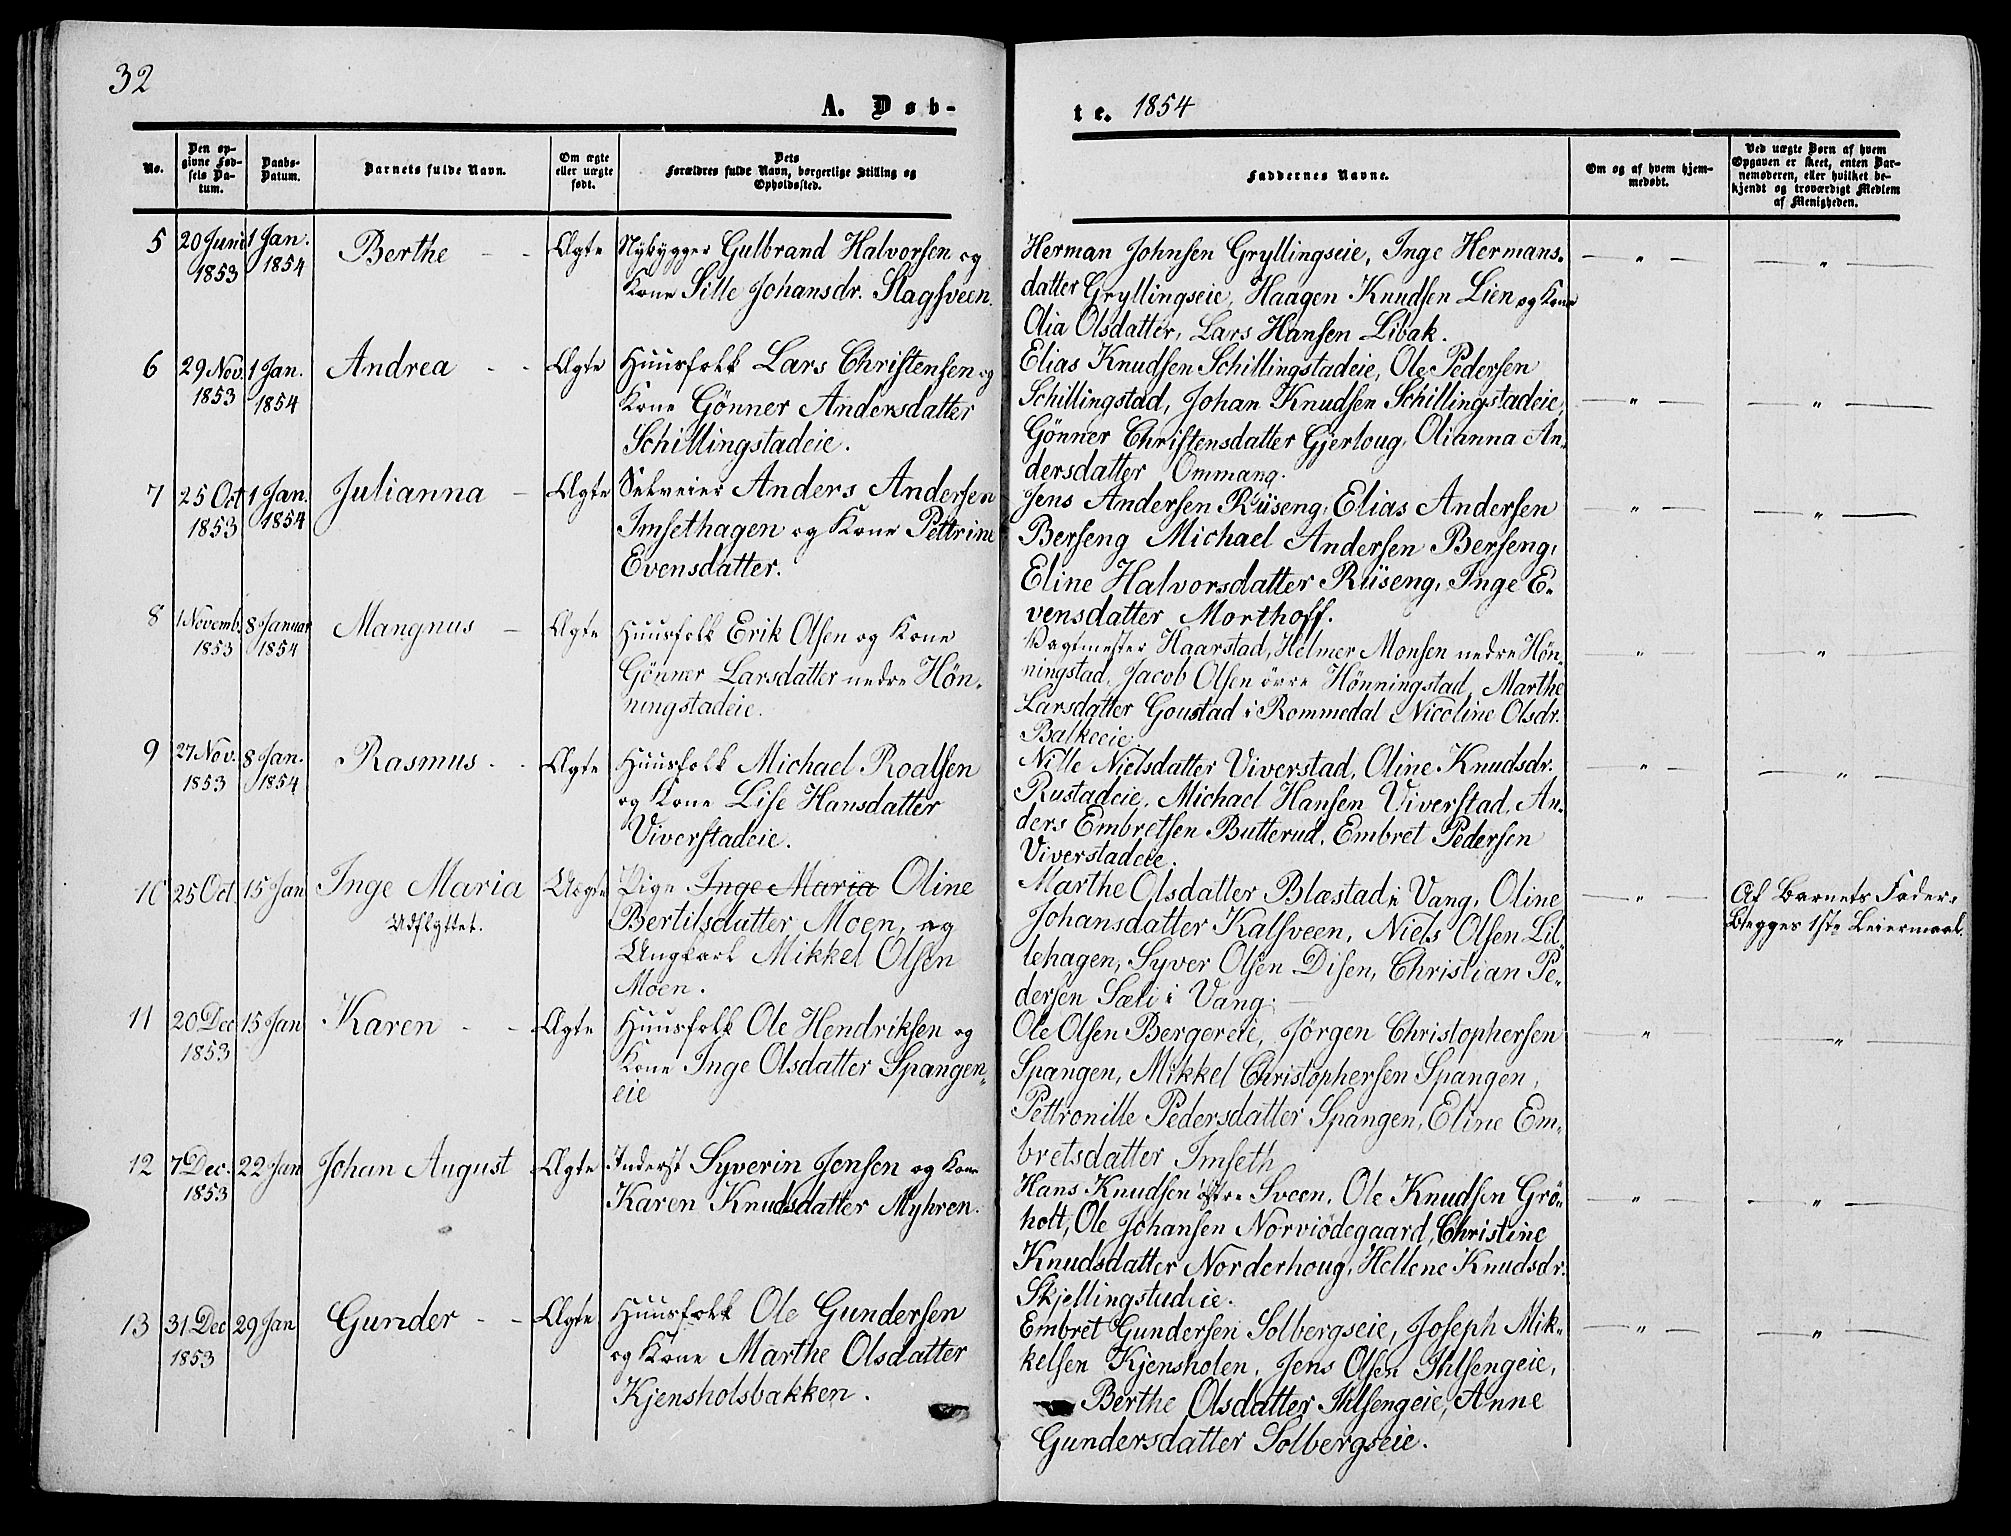 32
A. Døb-
te. 1854
No.
Den op-
givne Fød-
sels Da-
tum.
Daabs-
Datum.
Barnets fulde Navn.
Om ægte
eller uægte
født.
Dets
Forældres fulde Navn, borgerlige Stilling og
Opholdssted.
Faddernes Navne.
Om og af hvem hjem-
medøbt.
Ved uægte Børn af hvem
Opgaven er skeet, enten Bar-
nemoderen, eller hvilket be-
kjendt og troværdigt Medlem
af Menigheden.
5
20 Juni
1853
1 Jan.
1854
Berthe - -
Ægte
Nybygger Gulbrand Halvorsen og
Kone Sille Johansdr. Slagsveen.
Herman Johnsen Gryllingseie, Inge Hermans-
datter Gryllingseie, Haagen Knudsen Lien og Kone
Olia Olsdatter, Lars Hansen Libak.
— " —
— " —
6
29 Nov.
1853
1 Jan.
1854
Andrea - -
Ægte
Huusfolk Lars Christensen og
Kone Gönner Andersdatter
Schillingstadeie.
Elias Knudsen Schillingstadeie, Ole Pedersen
Schillingstad, Johan Knudsen Schillingstadeie,
Gönner Christensdatter Gjerloug, Olianna An-
dersdatter Ommang.
— " —
— " —
7
25 Oct
1853
1 Jan.
1854
Julianna -
Ægte
Selveier Anders Andersen
Imsethagen og Kone Pettrine
Evensdatter.
Jens Andersen Rüseng, Elias Andersen
Berseng Michael Andersen Berseng,
Eline Halvorsdatter Rüseng, Inge E-
vensdatter Morthoff.
— " —
— " —
8
1 Novemb.
1853
8 Januar
1854
Mangnus -
Ægte
Huusfolk Erik Olsen og Kone
Gönner Larsdatter nedre Hön-
ningstadeie.
Vagtmester Haarstad, Helmer Monsen nedre Hön-
ningstad, Jacob Olsen övre Hönningstad, Marthe
Larsdatter Goustad i Rommedal Nicoline Olsdr.
Balkeeie.
— " —
— " —
9
27 Nov.
1853
8 Jan.
1854
Rasmus - -
Ægte
Huusfolk Michael Roalsen
og Kone Lise Hansdatter
Viverstadeie.
Nille Nielsdatter Viverstad, Oline Knudsdr.
Rustadeie, Michael Hansen Viverstad, An-
ders Embretsen Butterud, Embret Pedersen
Viverstadeie.
— " —
— " —
10
25 Oct
15 Jan
Inge Maria
Udflyttet.
Uægte
Pige Inge Maria Oline
Bertilsdatter Moen, og
Ungkarl Mikkel Olsen
Moen.
Marthe Olsdatter Blæstad i Vang, Oline
Johansdatter Kalsveen, Niels Olsen Lil-
lehagen, Syver Olsen Disen, Christian Pe-
dersen Sæli i Vang.
— " —
Af Barnets Fader.
Begges 1ste Leiermaal.
11
20 Dec
1853
15 Jan
Karen - -
Ægte
Huusfolk Ole Hendriksen og
Kone Inge Olsdatter Spangen-
eie
Ole Olsen Bergereie, Jörgen Christophersen
Spangen, Mikkel Christophersen Spangen,
Pettronille Pedersdatter Spangen, Eline Em-
bretsdatter Imseth
"
"
12
7 Dec.
1853
22 Jan
Johan August
Ægte
Inderst Syverin Jensen og Kone
Karen Knudsdatter Myhren.
Hans Knudsen östre Sveen, Ole Knudsen Grö-
holt, Ole Johansen Norviödegaard, Christine
Knudsdatter Norderhoug, Hellene Knudsdr.
Skjellingstadeie.
— " —
— " —
13
31 Dec
1853
29 Jan
Gunder - -
Ægte
Huusfolk Ole Gundersen
og Kone Marthe Olsdatter
Kjensholsbakken.
Embret Gundersen Solbergseie, Joseph Mik-
kelsen Kjensholen, Jens Olsen Ihlsengeie,
Berthe Olsdatter Ihlsengeie, Anne
Gundersdatter Solbergseie.
— " —
— " —